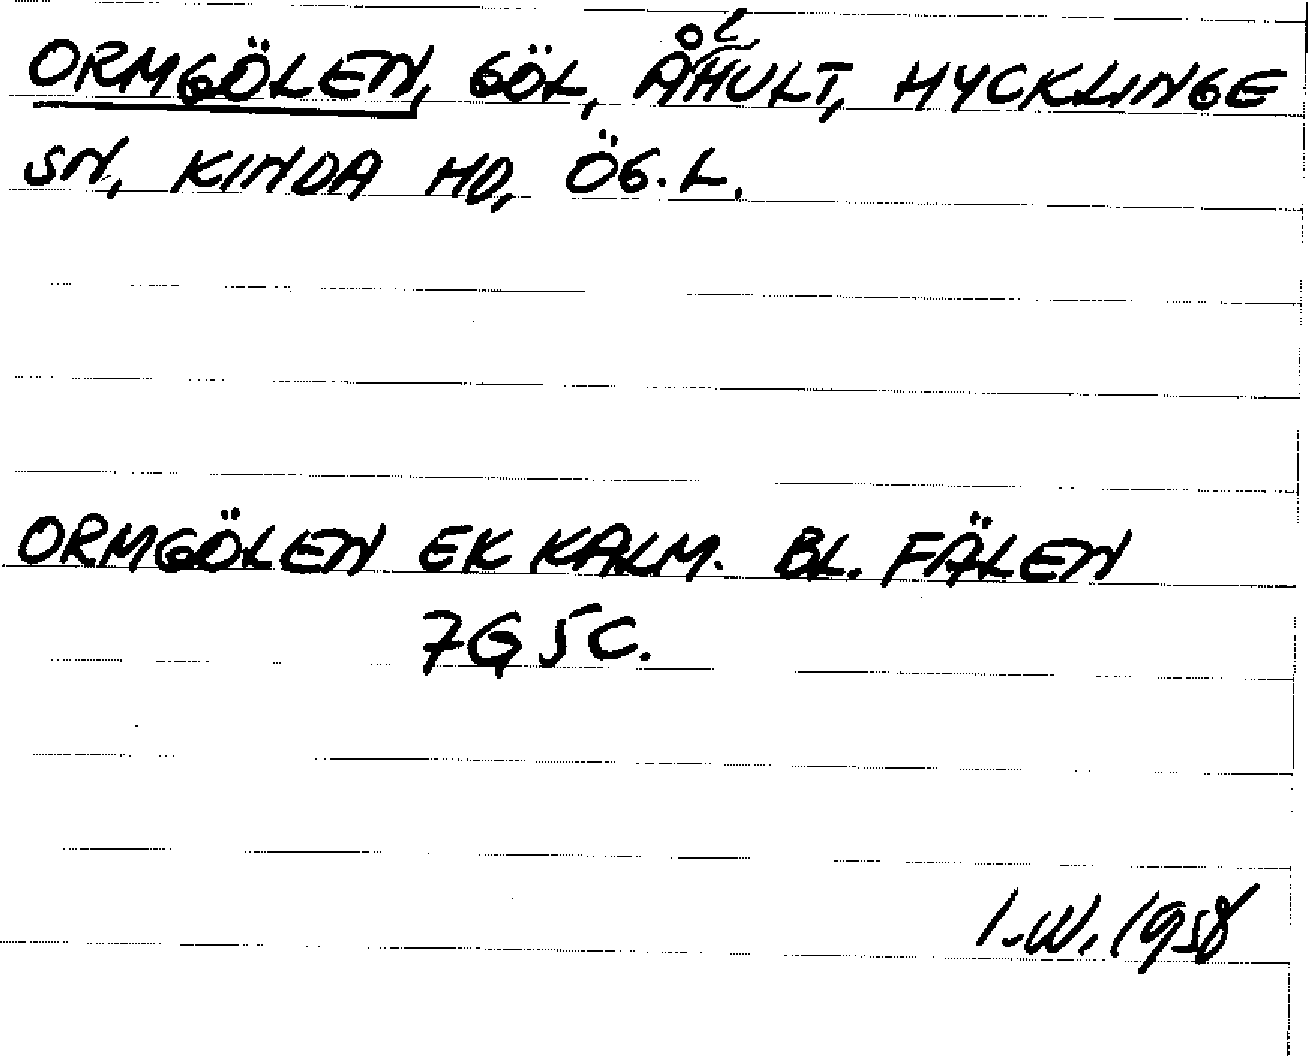 ORMGÖLEN, GÖL, ÅLHULT, HYCKLINGE
SN, KINDA HD, ÖG. L.
ORMGÖLEN EK KALM. BL. FÄLEN
7G 5C.
I.W. 1958